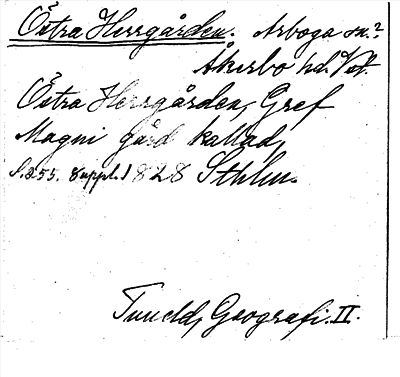 Östra Herrgården. Arboga sn.?
Åkerbo hd. Vst.
Östra Herrgården, Gref
Magni gård kallad,
S. 255. Suppl. 1828 Sthlm.
Tuneld, Geografi. II.